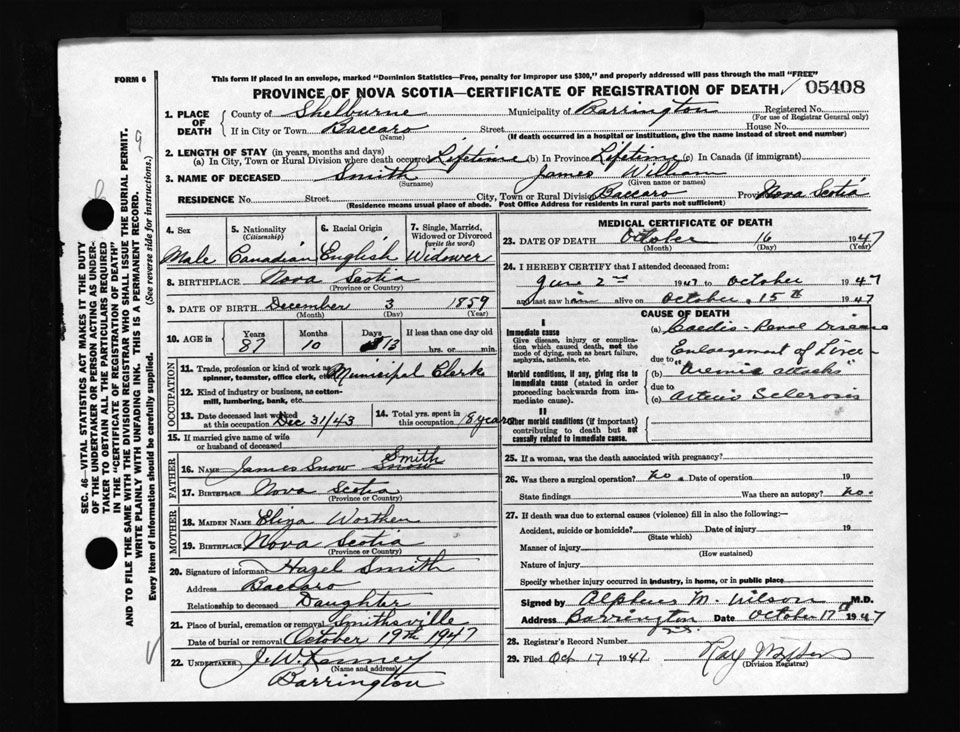 FORM 6
This form if placed in an envelope, marked "Dominion Statistics—Free, penalty for improper use $300," and properly addressed will pass through the mail "FREE"
PROVINCE OF NOVA SCOTIA—CERTIFICATE OF REGISTRATION OF DEATH 05408
1. PLACE OF DEATH
County of Shelburne Municipality of Barrington Registered No.
(For use of Registrar General only)
If in City or Town Baccaro Street House No.
(Name) (If death occurred in a hospital or institution, give the name instead of street and number)
2. LENGTH OF STAY (in years, months and days)
(a) In City, Town or Rural Division where death occurred Lifetime (b) In Province Lifetime (c) In Canada (if immigrant)
3. NAME OF DECEASED Smith James William
(Surname) (Given name or names)
RESIDENCE No. Street City, Town or Rural Division Baccaro Province Nova Scotia
(Residence means usual place of abode. Post Office Address for residents in rural parts not sufficient)
4. Sex 5. Nationality (Citizenship) 6. Racial Origin 7. Single, Married, Widowed or Divorced (write the word)
Male Canadian English Widower
8. BIRTHPLACE Nova Scotia
(Province or Country)
9. DATE OF BIRTH December 3 1859
(Month) (Day) (Year)
10. AGE in Years Months Days If less than one day old
87 10 13 hrs. or min.
OCCUPATION
11. Trade, profession or kind of work as spinner, teamster, office clerk, etc. Municipal Clerk
12. Kind of industry or business, as cotton-mill, lumbering, bank, etc.
13. Date deceased last worked at this occupation Dec 31/43
14. Total yrs. spent in this occupation 18 years
15. If married give name of wife or husband of deceased
FATHER
16. Name James Snow Smith
17. Birthplace Nova Scotia
(Province or Country)
MOTHER
18. Maiden Name Eliza Worthen
19. Birthplace Nova Scotia
(Province or Country)
20. Signature of informant Hazel Smith
Address Baccaro
Relationship to deceased Daughter
21. Place of burial, cremation or removal Smithsville
Date of burial or removal October 19th 1947
22. Undertaker J. W. Kenney
(Name and address)
Barrington
MEDICAL CERTIFICATE OF DEATH
23. DATE OF DEATH October 16 1947
(Month) (Day) (Year)
24. I HEREBY CERTIFY that I attended deceased from:
June 2nd 1947 to October 1947
and last saw him alive on October 15th 1947
CAUSE OF DEATH
I
Immediate cause
Give disease, injury or complication which caused death, not the mode of dying, such as heart failure, asphyxia, asthenia, etc.
(a) Cardio-Renal Disease
Enlargement of Liver
due to
Morbid conditions, if any, giving rise to immediate cause (stated in order proceeding backwards from immediate cause).
(b) "Uremic attacks"
due to
(c) Arterio Sclerosis
II
Other morbid conditions (if important) contributing to death but not causally related to immediate cause.
25. If a woman, was the death associated with pregnancy?
26. Was there a surgical operation? No. Date of operation 19
State findings Was there an autopsy? No.
27. If death was due to external causes (violence) fill in also the following:—
Accident, suicide or homicide? Date of injury 19
(State which)
Manner of injury
(How sustained)
Nature of injury
Specify whether injury occurred in industry, in home, or in public place
Signed by Alpheus M. Wilson M.D.
Address Barrington Date October 17th 1947
28. Registrar's Record Number
29. Filed Oct 17 1947
(Division Registrar)
SEC. 46—VITAL STATISTICS ACT MAKES IT THE DUTY
OF THE UNDERTAKER OR PERSON ACTING AS UNDER-
TAKER TO OBTAIN ALL THE PARTICULARS REQUIRED
IN THE "CERTIFICATE OF REGISTRATION OF DEATH"
AND TO FILE THE SAME WITH THE DIVISION REGISTRAR WHO SHALL ISSUE THE BURIAL PERMIT.
WRITE PLAINLY WITH UNFADING INK. THIS IS A PERMANENT RECORD.
Every item of information should be carefully supplied. (See reverse side for instructions.)